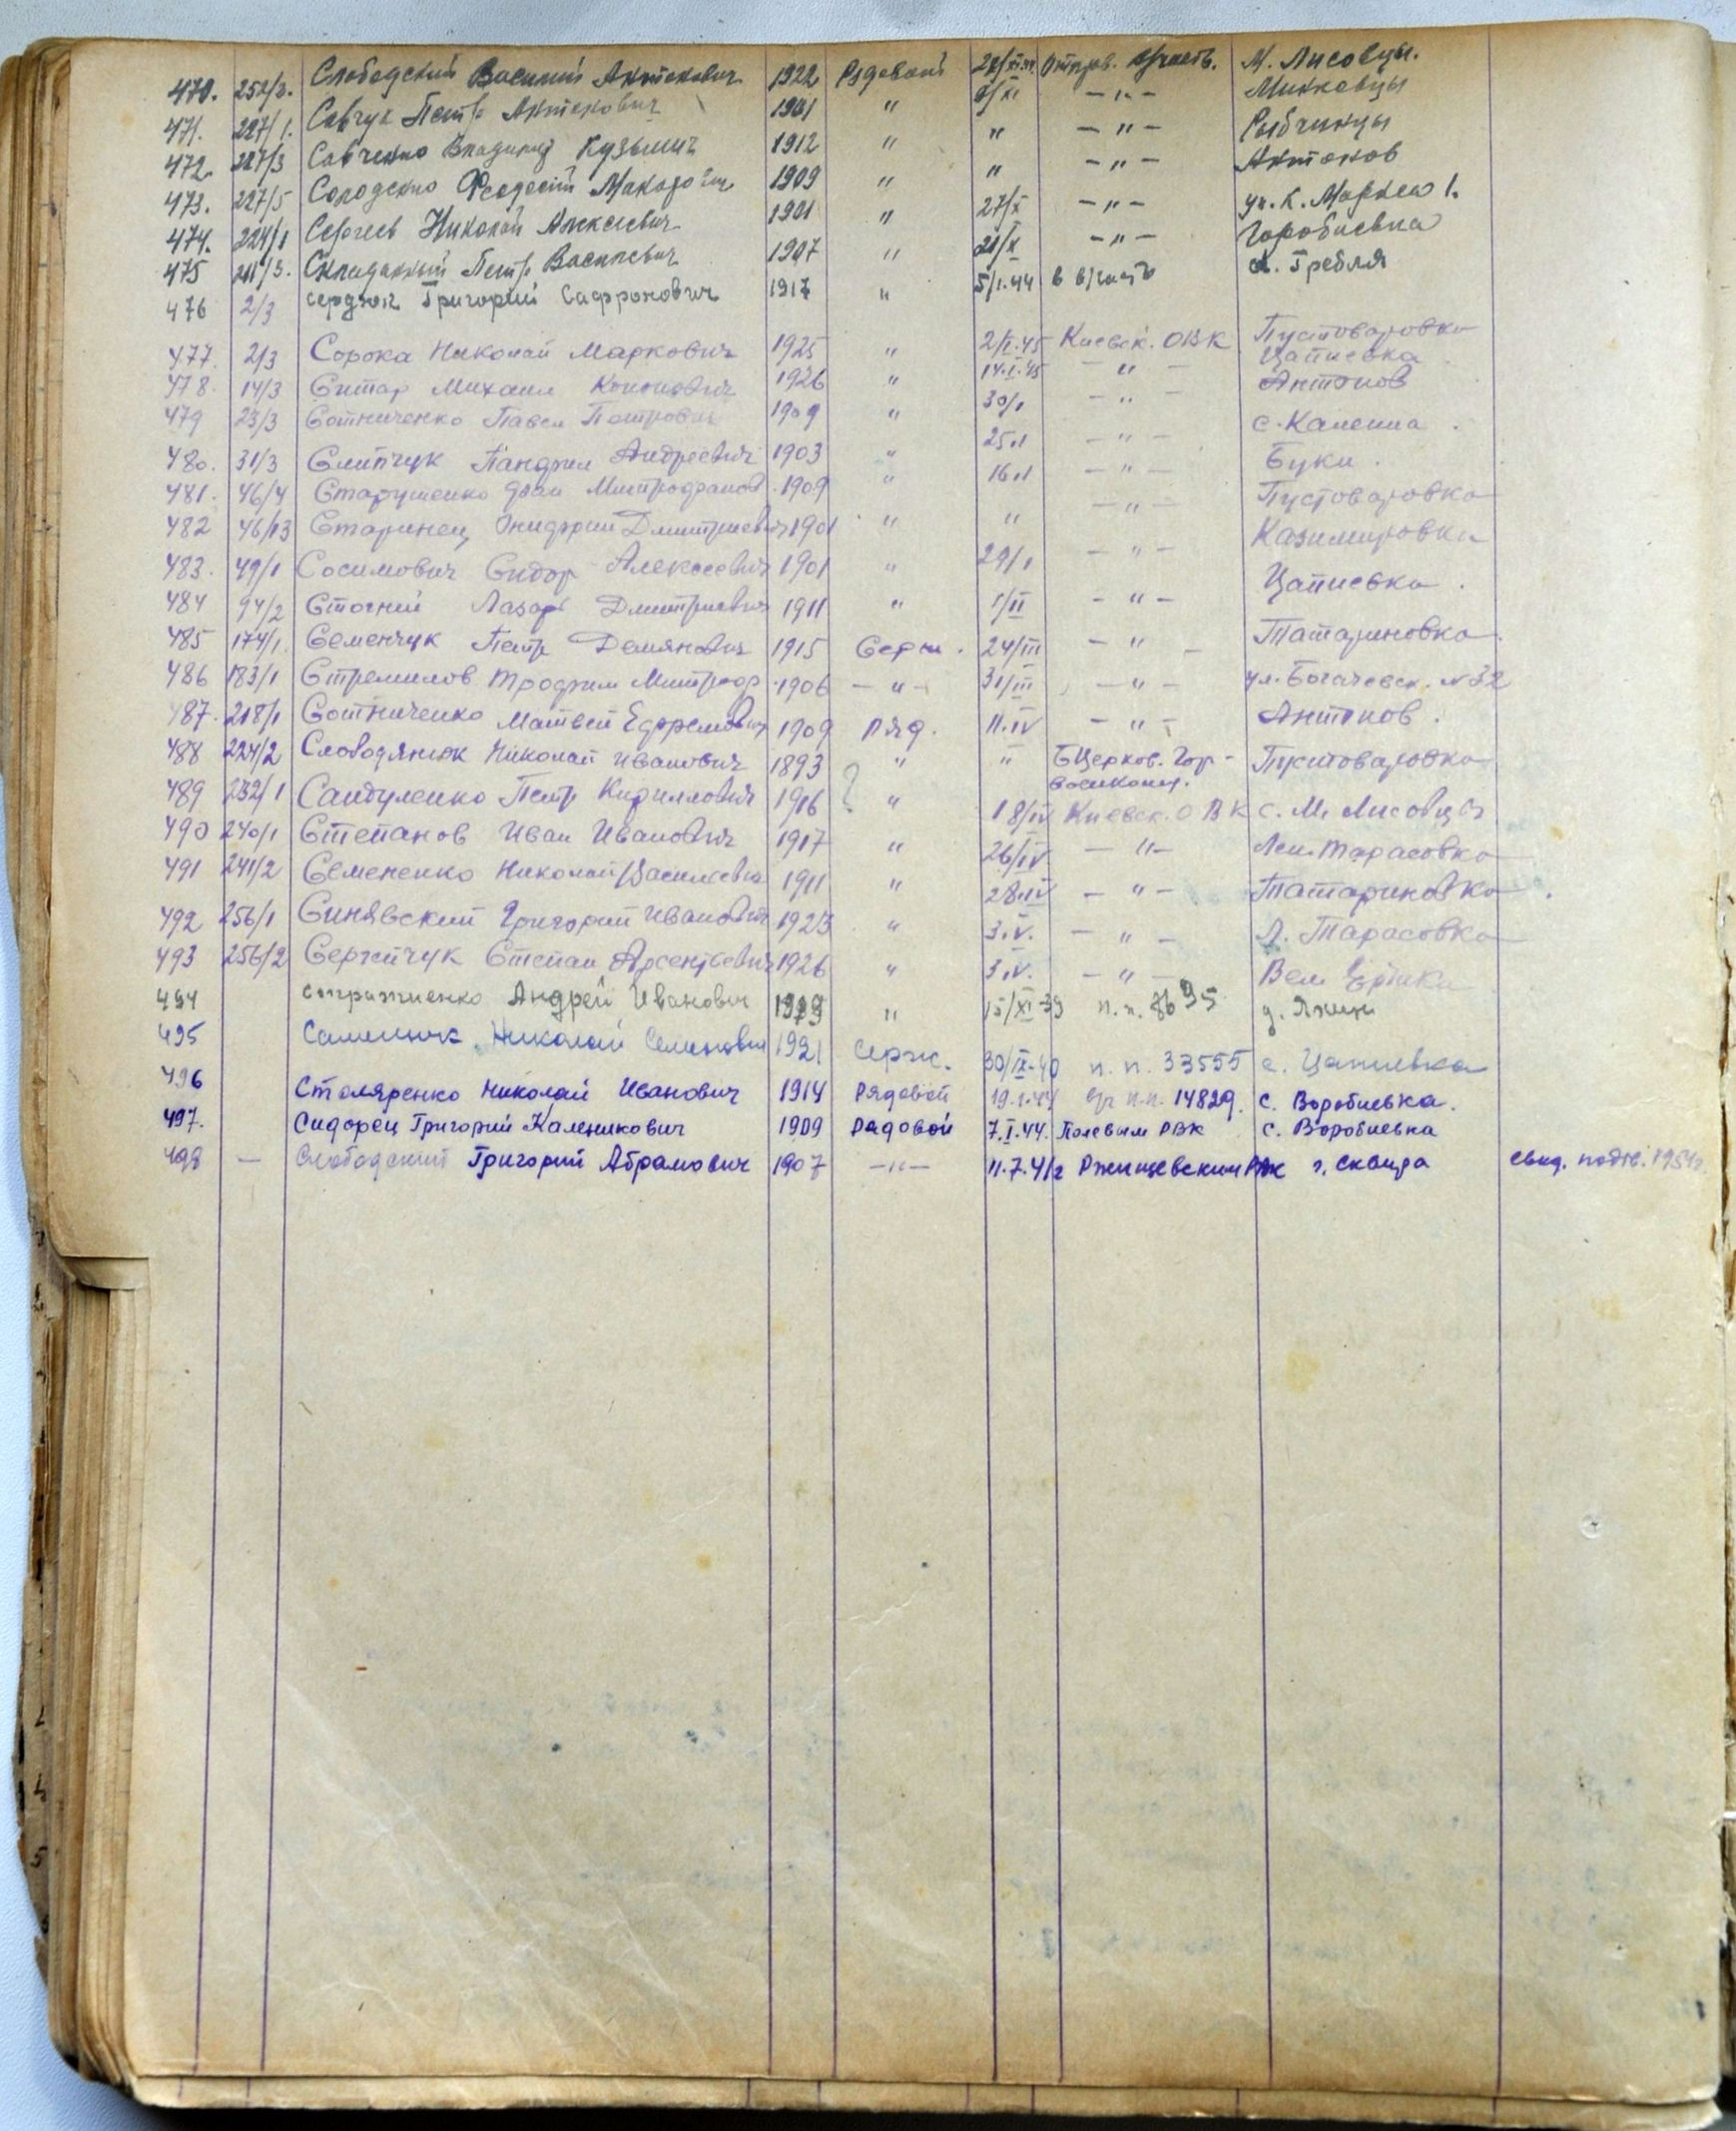 470. 252/2. Слободский Василий Антонович 1922 Рядовой 24/XI.44 Отпров. в/часть. М. Лисовцы.
471. 227/1. Савчук Петр Антонович 1901 " 8/XI — " — Миньковцы
472. 227/3 Савченко Владимир Кузьмич 1912 " " — " — Рыбчинцы
473. 227/5 Солоденко Феодосий Макарович 1909 " " — " — Антонов
474. 224/1 Сергеев Николай Алексеевич 1901 " 27/X — " — ул. К. Маркса 1.
475 211/3. Складанный Петр Васильевич 1907 " 21/X — " — Горобиевка
476 2/3 Сердюк Григорий Сафронович 1917 " 5/I.44 в в/часть с. Гребля
477. 2/3 Сорока Николай Маркович 1925 " 2/I.45 Киевск. ОВК Пустоваровка
478. 14/3 Ситар Михаил Кононович 1926 " 14.I.45 — " — Цапиевка
479 23/3 Сотниченко Павел Петрович 1909 " 30/I — " — Антонов
480. 31/3 Слипчук Пандрил Андреевич 1903 " 25.I — " — с. Каленна.
481. 46/4 Старушенко Иван Митрофанов. 1909 " 16.I — " — Буки.
482 46/13 Старинец Онифрий Дмитриевич 1901 " " — " — Пустоваровка
483. 49/1 Сосимович Сидор Алексеевич 1901 " 29/I — " — Казимировка
484 94/2 Стогний Лазарь Дмитриевич 1911 " 1/II — " — Цапиевка.
485 174/1. Семенчук Петр Демянович 1915 Серж. 24/III — " — Татариновка.
486 183/1 Стремилов Трофим Митроф. 1906 — " — 31/III — " — ул. Богачевск. №32
487. 218/1 Сотниченко Матвей Ефремович 1909 Ряд. 11.IV — " — Антонов.
488 224/2 Слободянюк Николай Иванович 1893 " " БЦерков. Гор- Пустоваровка
военком.
489 232/1 Сандуленко Петр Кириллович 1916 ? " 18/IV Киевск. ОВК с. М. Лисовцы
490 240/1 Степанов Иван Иванович 1917 " 26/IV — " — Лен. Тарасовка
491 241/2 Семененко Николай Васильевич 1911 " 28.IV — " — Татариновка.
492 256/1 Синявский Григорий Иванович 1923 " 3.V. — " — Л. Тарасовка
493 256/2 Сергейчук Степан Арсеньевич 1926 " 3.V. — " — Вел Ерчики
494 Андрей Иванович " 15/XI 39 п.п. 8695 д.
495 Николай Семенович 1921 Серж. 30/IX-40 п.п. 33555 с. Цапиевка
496 Столяренко Николай Иванович 1914 Рядовой 19.I.44 п.п. 14829. с. Воробиевка.
497. Сидорец Григорий Каленикович 1909 Рядовой 7.I.44. Полевым РВК с. Воробиевка
498 — Слободский Григорий Абрамович 1907 — " — 11.7.41г Ржищевским РВК г. Сквира свид. подтв. 1954г.